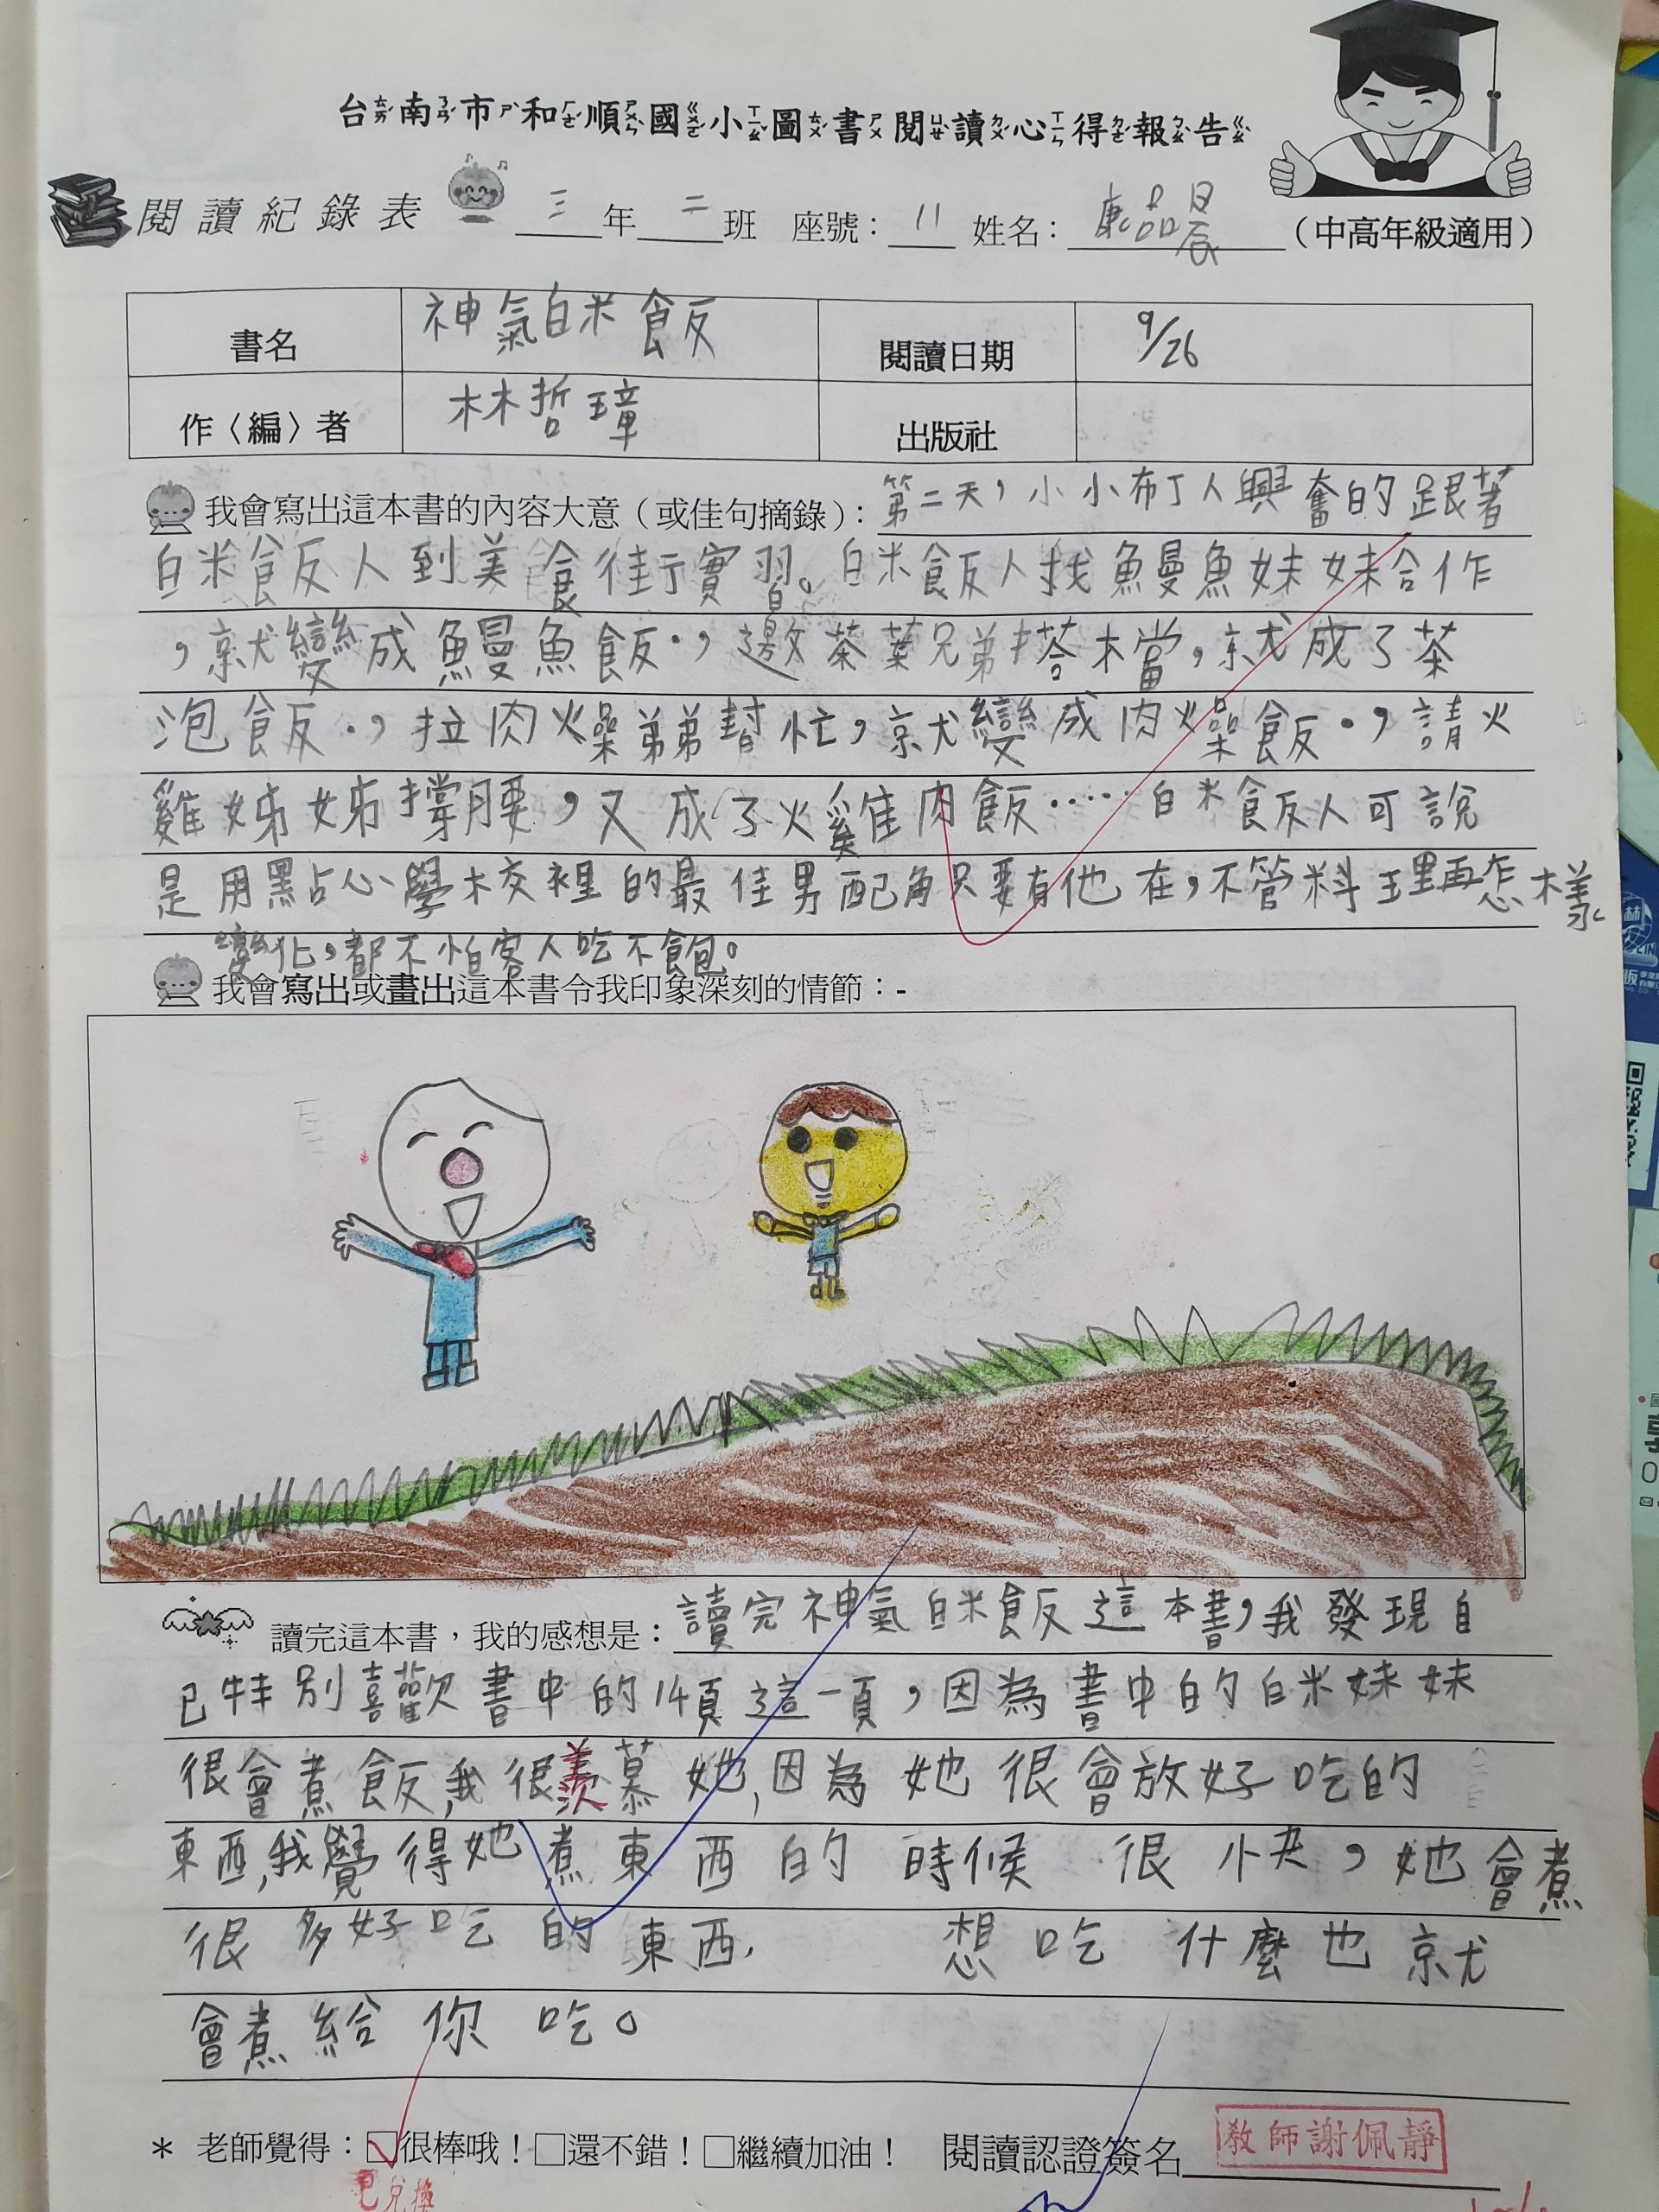 台南市和順國小圖書閱讀心得報告
閱讀紀錄表 三年二班 座號：11 姓名：康品晨（中高年級適用）
書名 神氣白米飯 閱讀日期 9/26
作〈編〉者 林哲璋 出版社
我會寫出這本書的內容大意（或佳句摘錄）：第二天，小小布丁人興奮的跟著
白米飯人到美食街實習。白米飯人找鰻魚妹妹合作
，就變成鰻魚飯；邀茶葉兄弟搭檔，就成了茶
泡飯；拉肉燥弟弟幫忙，就變成肉燥飯；請火
雞姊姊撐腰，又成了火雞肉飯……白米飯人可說
是用點心學校裡的最佳男配角只要有他在，不管料理再怎樣
變化，都不怕客人吃不飽。
我會寫出或畫出這本書令我印象深刻的情節：-
讀完這本書，我的感想是：讀完神氣白米飯這本書，我發現自
己特別喜歡書中的14頁這一頁，因為書中的白米妹妹
很會煮飯，我很羨慕她，因為她很會放好吃的
東西，我覺得她煮東西的時候 很快，她會煮
很多好吃的東西， 想吃什麼也就
會煮給你吃。
* 老師覺得：☑很棒哦！□還不錯！□繼續加油！ 閱讀認證簽名 教師謝佩靜
已兌換